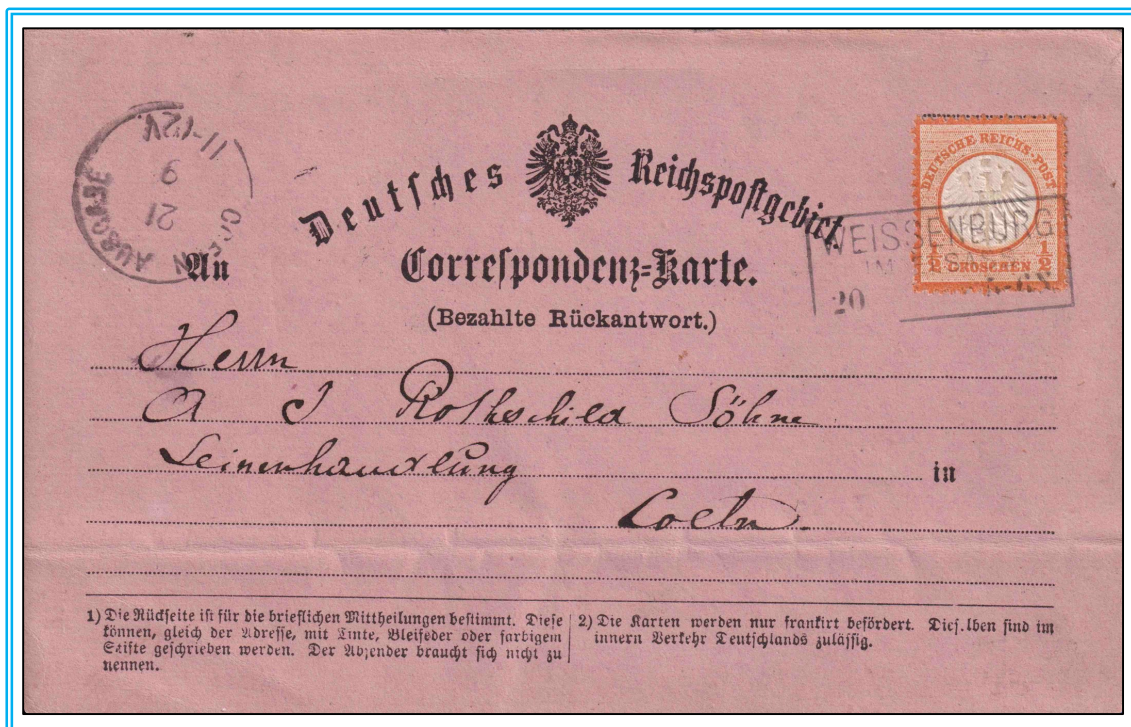 Deutsches Reichspostgebiet.
DEUTSCHE REICHS-POST
1/2 GROSCHEN 1/2
WEISSENBURG
IM ELSASS
20
COELN AUSGABE
21
9
11-12V
An
Correspondenz=Karte.
(Bezahlte Rückantwort.)
Herrn
A J Rothschild Söhne
Leinenhandlung in
Coeln.
1) Die Rückseite ist für die brieflichen Mittheilungen bestimmt. Diese
können, gleich der Adresse, mit Tinte, Bleifeder oder farbigem
Stifte geschrieben werden. Der Absender braucht sich nicht zu
nennen.
2) Die Karten werden nur frankirt befördert. Dieselben sind im
innern Verkehr Deutschlands zulässig.